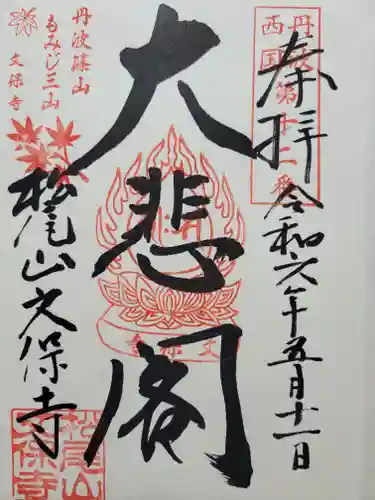 奉拝
令和六年五月十一日
丹波
西国
第十二番
大悲閣
文保寺
丹波篠山
もみじ三山
文保寺
松尾山文保寺
松尾山
文保寺